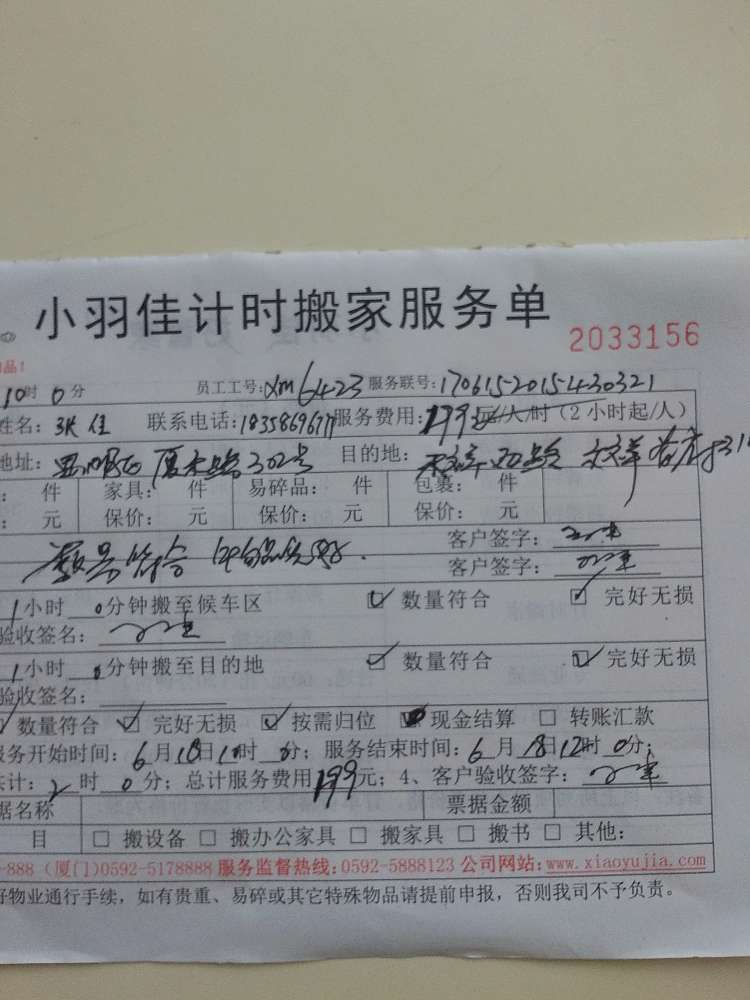 小羽佳计时搬家服务单
2033156
品！
10时 0分 员工工号:xm6423 服务联号:1706152015430321
姓名: 张佳 联系电话:1835869677 服务费用:199元/人/时（2小时起/人）
地址: 思明区厦禾路302号 目的地:
: 件 家具: 件 易碎品: 件 包裹: 件
: 元 保价: 元 保价: 元 保价: 元
数量符合 客户签字:
客户签字:
1小时 0分钟搬至候车区 ☑ 数量符合 ☑ 完好无损
验收签名:
1小时 0分钟搬至目的地 ☑ 数量符合 ☑ 完好无损
验收签名:
☑ 数量符合 ☑ 完好无损 ☑ 按需归位 ☑ 现金结算 □ 转账汇款
服务开始时间: 6月18日10时 0分; 服务结束时间: 6月18日12时 0分;
共计: 2时 0分; 总计服务费用199元; 4、客户验收签字:
据名称 票据金额
目 □ 搬设备 □ 搬办公家具 □ 搬家具 □ 搬书 □ 其他:
-888 (厦门)0592-5178888 服务监督热线:0592-5888123 公司网站:www.xiaoyujia.com
好物业通行手续，如有贵重、易碎或其它特殊物品请提前申报，否则我司不予负责。